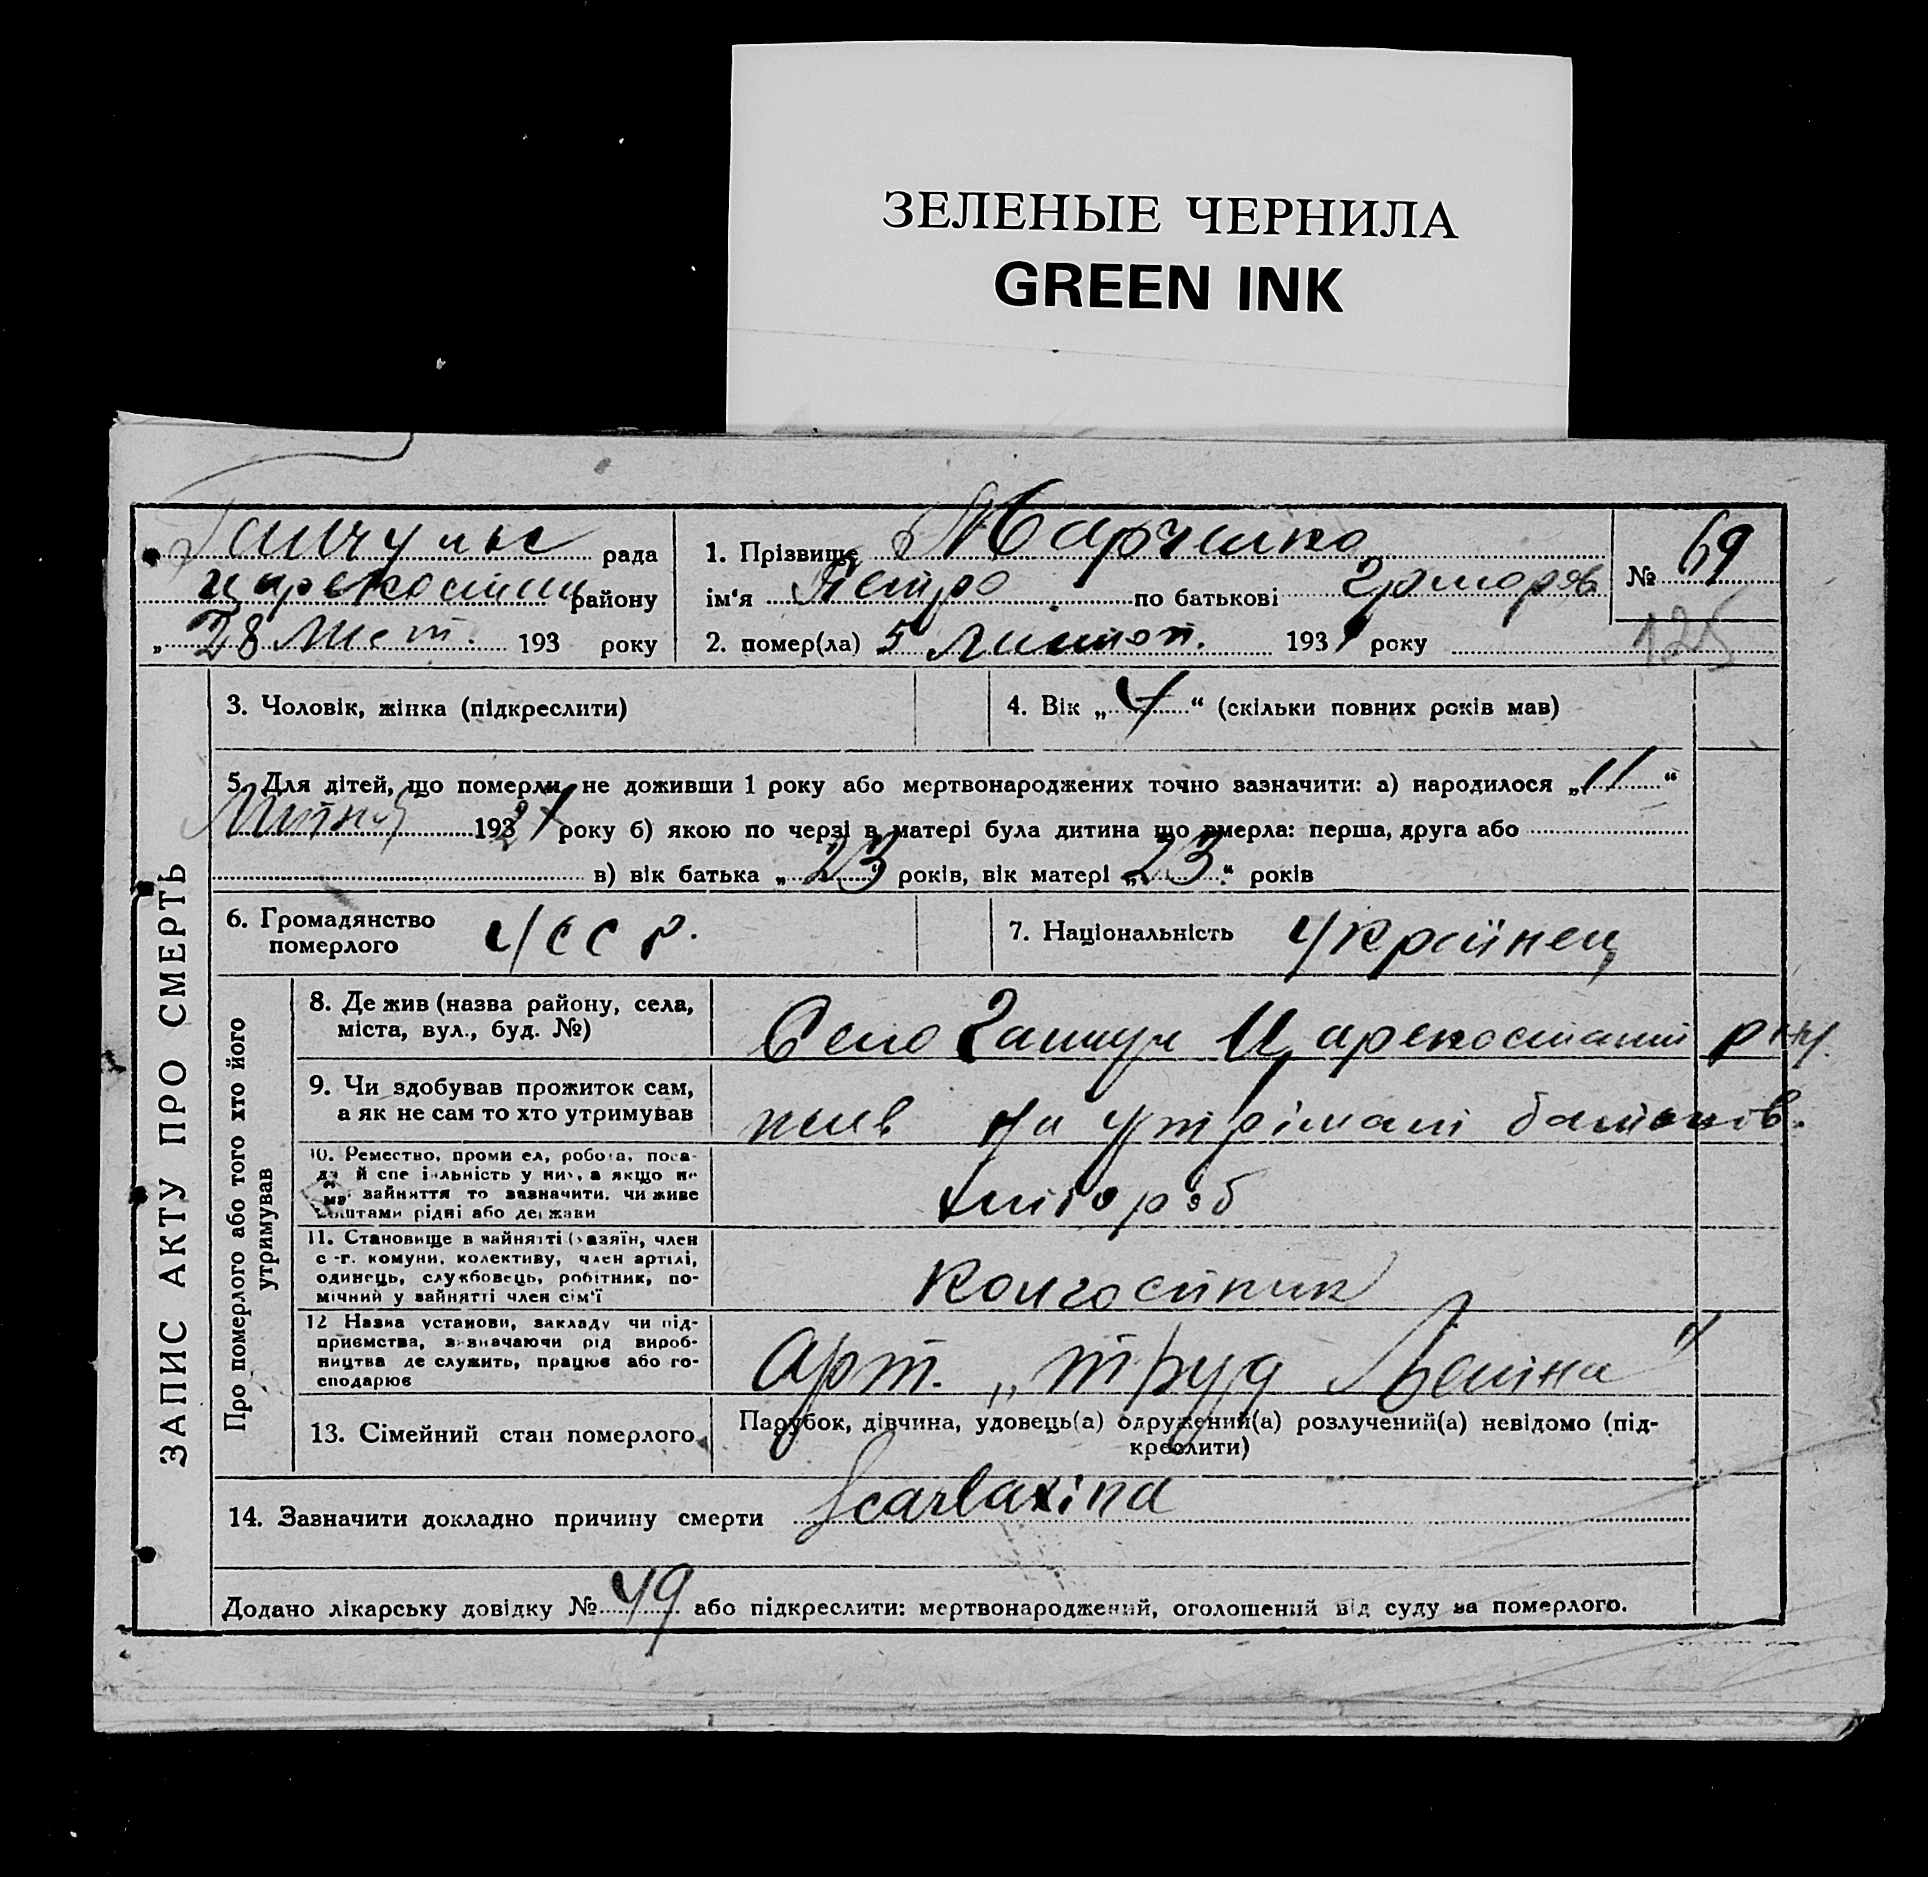 ЗЕЛЕНЫЕ ЧЕРНИЛА
GREEN INK
рада
району
„ 28 Лист. 193 року
1. Прізвище Марченко
ім‘я Петро по батькові Григоров
2. помер(ла) 5 Листоп. 1931 року
№ 69
125
ЗАПИС АКТУ ПРО СМЕРТЬ
3. Чоловік, жінка (підкреслити)
4. Вік „ 4 “ (скільки повних років мав)
5. Для дітей, що померли, не доживши 1 року або мертвонароджених точно зазначити: а) народилося „ 11 “
193 року б) якою по черзі в матері була дитина що вмерла: перша, друга або
в) вік батька „ 23 “ років, вік матері „ 23 “ років
6. Громадянство
померлого
УССР.
7. Національність Украінец
Про померлого або того хто його
утримував
8. Де жив (назва району, села,
міста, вул., буд. №)
Село
9. Чи здобував прожиток сам,
а як не сам то хто утримував
жив на утрімані батьків.
10. Ремество, промисел, робота, поса-
да й спеціяльність у них, а якщо не
має зайняття то зазначити, чи живе
коштами рідні або держави
хлібороб
11. Становище в зайнятті (хазяїн, член
с.-г. комуни, колективу, член артілі,
одинець, службовець, робітник, по-
мічний у зайнятті член сім‘ї
Колгоспник
12 Назва установи, закладу чи під-
приємства, зазначаючи рід вироб-
ництва де служить, працює або го-
сподарює
Арт. „труд Леніна“
13. Сімейний стан померлого
Парубок, дівчина, удовець(а) одружений(а) розлучений(а) невідомо (під-
креслити)
14. Зазначити докладно причину смерти Scarlaxina
Додано лікарську довідку № 49 або підкреслити: мертвонароджений, оголошений від суду за померлого.